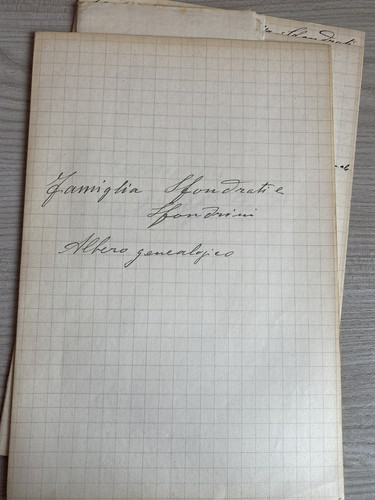 Famiglia Sfondrati e
Sfondrini
Albero genealogico